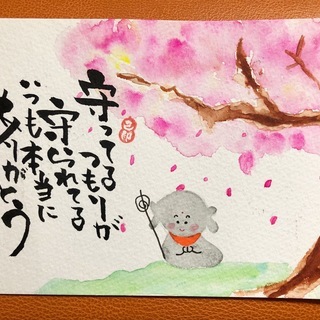 守ってる
つもりが
守られてる
いつも本当に
ありがとう